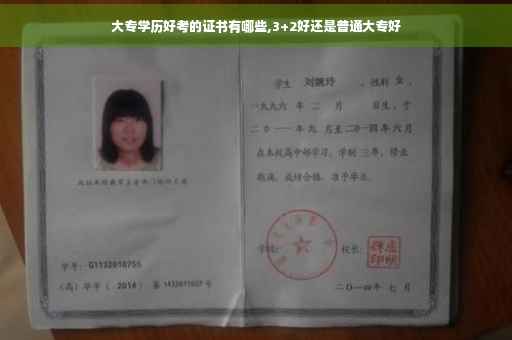 大专学历好考的证书有哪些,3+2好还是普通大专好
学生 刘婉玲 ，性别 女 ，
一九九六 年 二 月 日生，于
二〇一一年九 月至二〇一四年 六 月
在本校高中部学习，学制 三 年，修业
期满，成绩合格，准予毕业。
学校： 校长：
学号： G1132010755
（高）毕字（ 2014 ）第 1432011027 号
二〇一四年 七 月